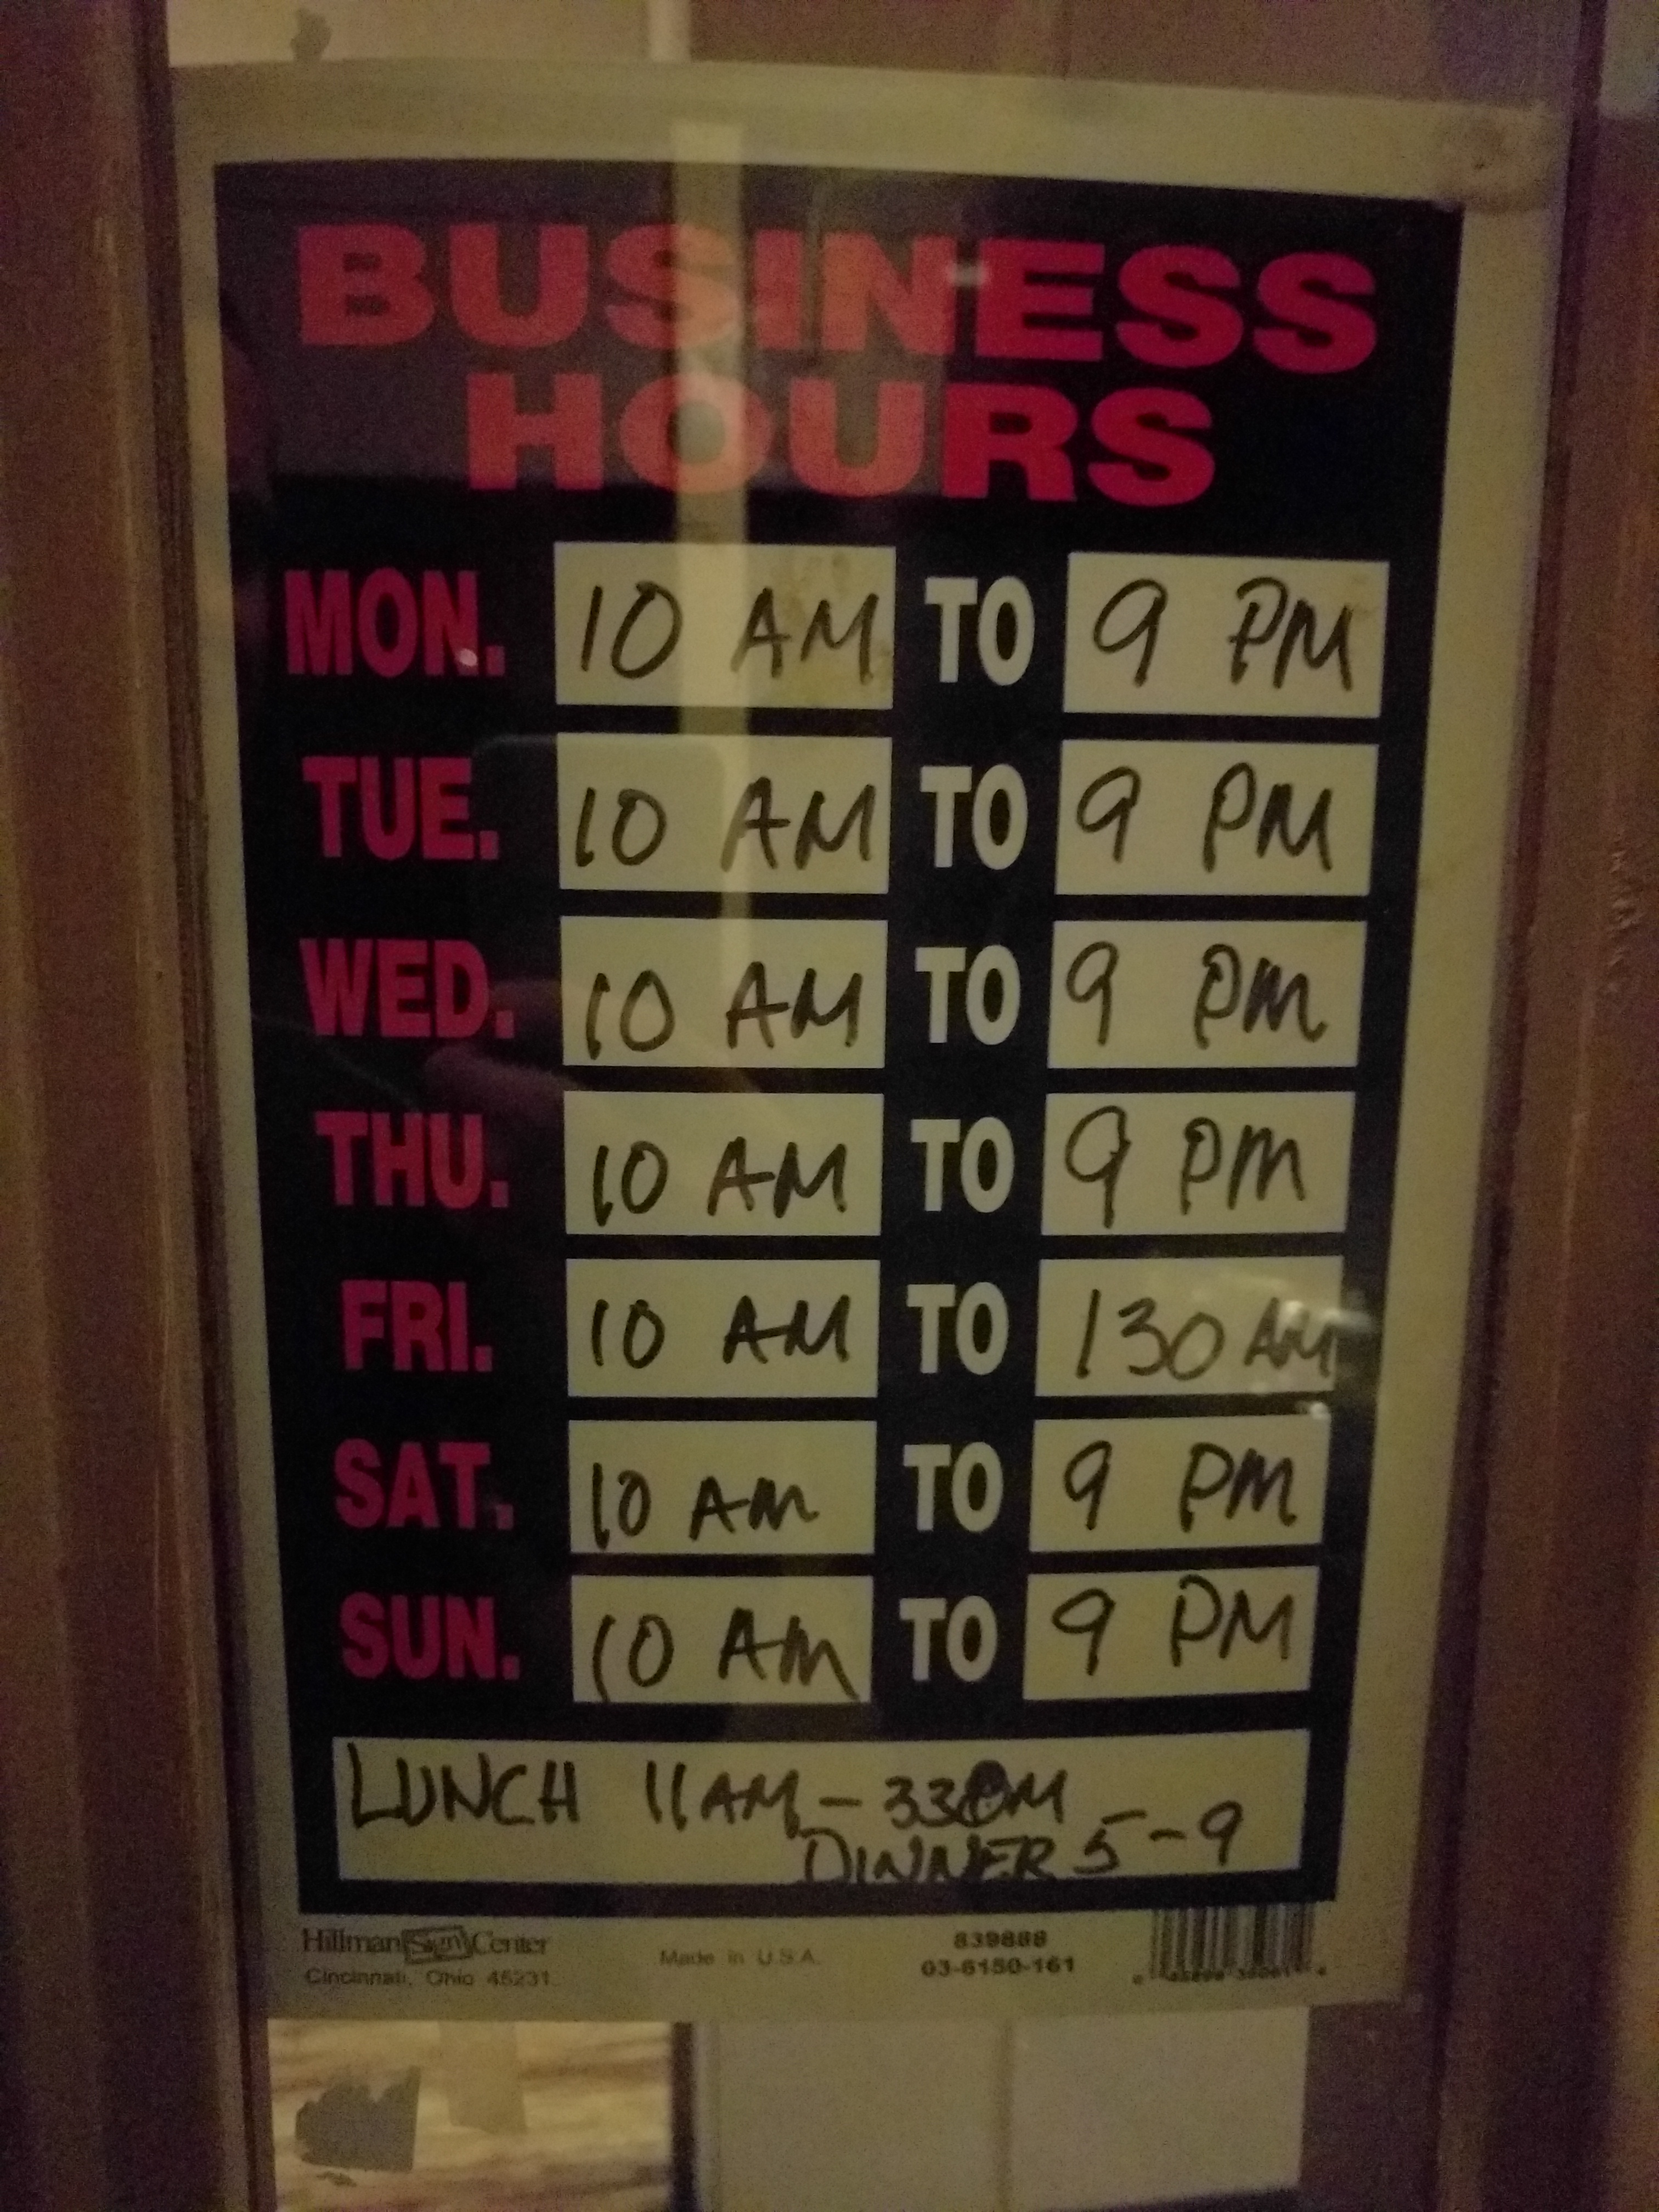 BUSINESS
HOURS
MON. 10 AM TO 9 PM
TUE. 10 AM TO 9 PM
WED. 10 AM TO 9 PM
THU. 10 AM TO 9 PM
FRI. 10 AM TO 130 AM
SAT. 10 AM TO 9 PM
SUN. 10 AM TO 9 PM
LUNCH 11AM - 33
DINNER 5-9
Hillman Sign Center Made in U.S.A. 839888
Cincinnati, Ohio 45231 03-6150-161